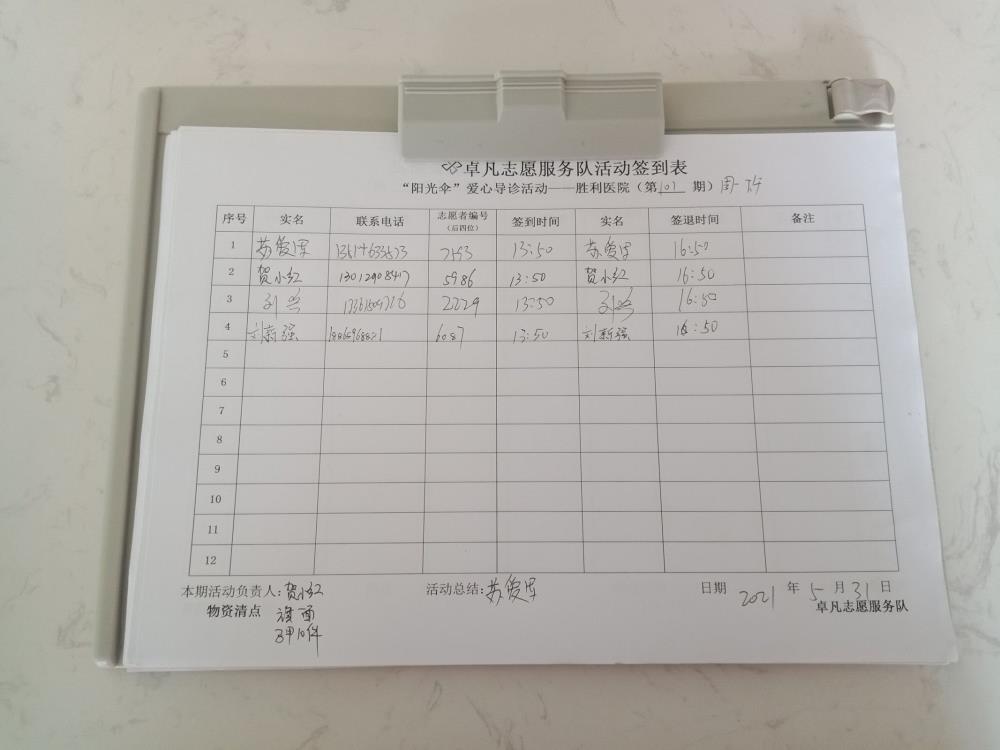 卓凡志愿服务队活动签到表
“阳光伞”爱心导诊活动——胜利医院（第107 期）周一下午
序号 实名 联系电话 志愿者编号（后四位） 签到时间 实名 签退时间 备注
1 苏爱军 7553 13:50 苏爱军 16:50
2 贺小红 13012908417 5986 13:50 贺小红 16:50
3 2229 13:50 16:50
4 刘新强 6087 13:50 刘新强 16:50
5
6
7
8
9
10
11
12
本期活动负责人：贺小红 活动总结：苏爱军 日期 2021 年 5 月 31 日
物资清点 旗 面 卓凡志愿服务队
马甲10件